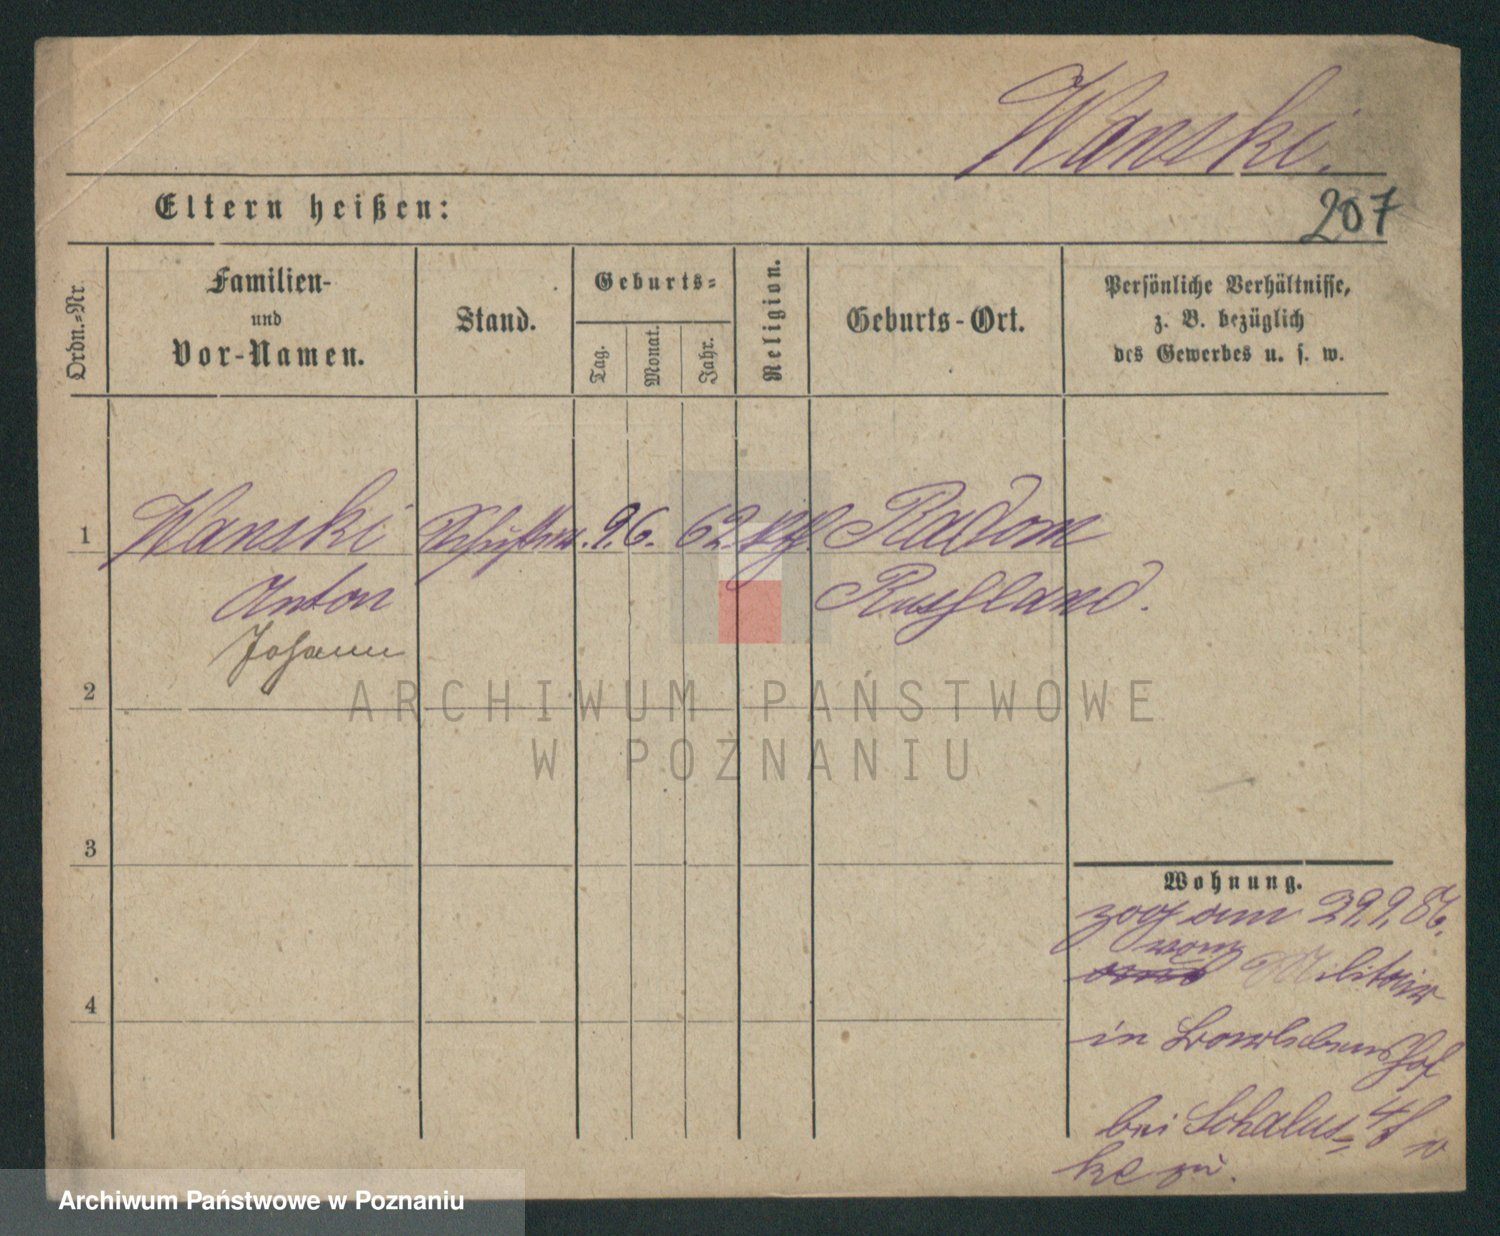 Wanski.
Eltern heißen:
207
Ordn.=Nr.
Familien-
und
Vor-Namen.
Stand.
Geburts=
Tag.
Monat.
Jahr.
Religion.
Geburts-Ort.
Persönliche Verhältnisse,
z. B. bezüglich
des Gewerbes u. s. w.
1
Wanski 9. 6. 62. Radom
Anton Russland.
Johann
2
ARCHIWUM PAŃSTWOWE
W POZNANIU
3
Wohnung.
zog am 29.9.86.
vom
Militair
in
4
bei
zu.
Archiwum Państwowe w Poznaniu